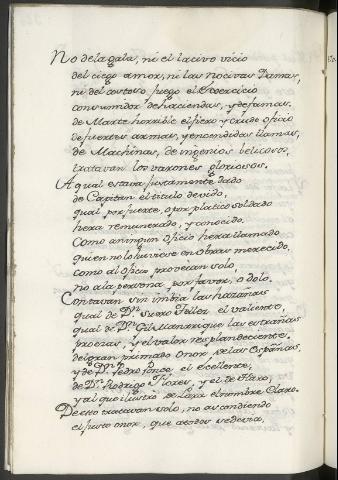 No de la gala, ni el lacivo vicio
del ciego amor, ni las nocivas Damas,
ni del costoso juego el exercicio
consumidor de haciendas, y de famas.
de Marte horrible el fiero y crudo oficio
de fuertes armas, y encendidas llamas,
de Machinas, de ingenios belicosos,
tratavan los varones gloriosos.
A qual estava justamente dado
de Capitan el titulo devido,
qual por fuerte, o por platico soldado
hera remunerado, y conocido.
Como a ningun oficio hera llamado
quien no lo tuviese en obras merecido,
como al oficio proveian solo,
no a la persona por favor, o dolo.
Contavan sin imbidia las hazañas
qual de Dn. Suero Tellez el valiente,
qual de Dn. Gil Manrique las estrañas
proezas, y el valor resplandeciente.
del gran primado onor de las Españas,
y de Dn. Pedro Ponce el ecelente,
de Dn. Rodrigo Flores, y el de Haro,
y al que ilustro de Lara el nombre Claro.
De esto tratavan solo, no ascondiendo
el justo onor, que a todos se devia,